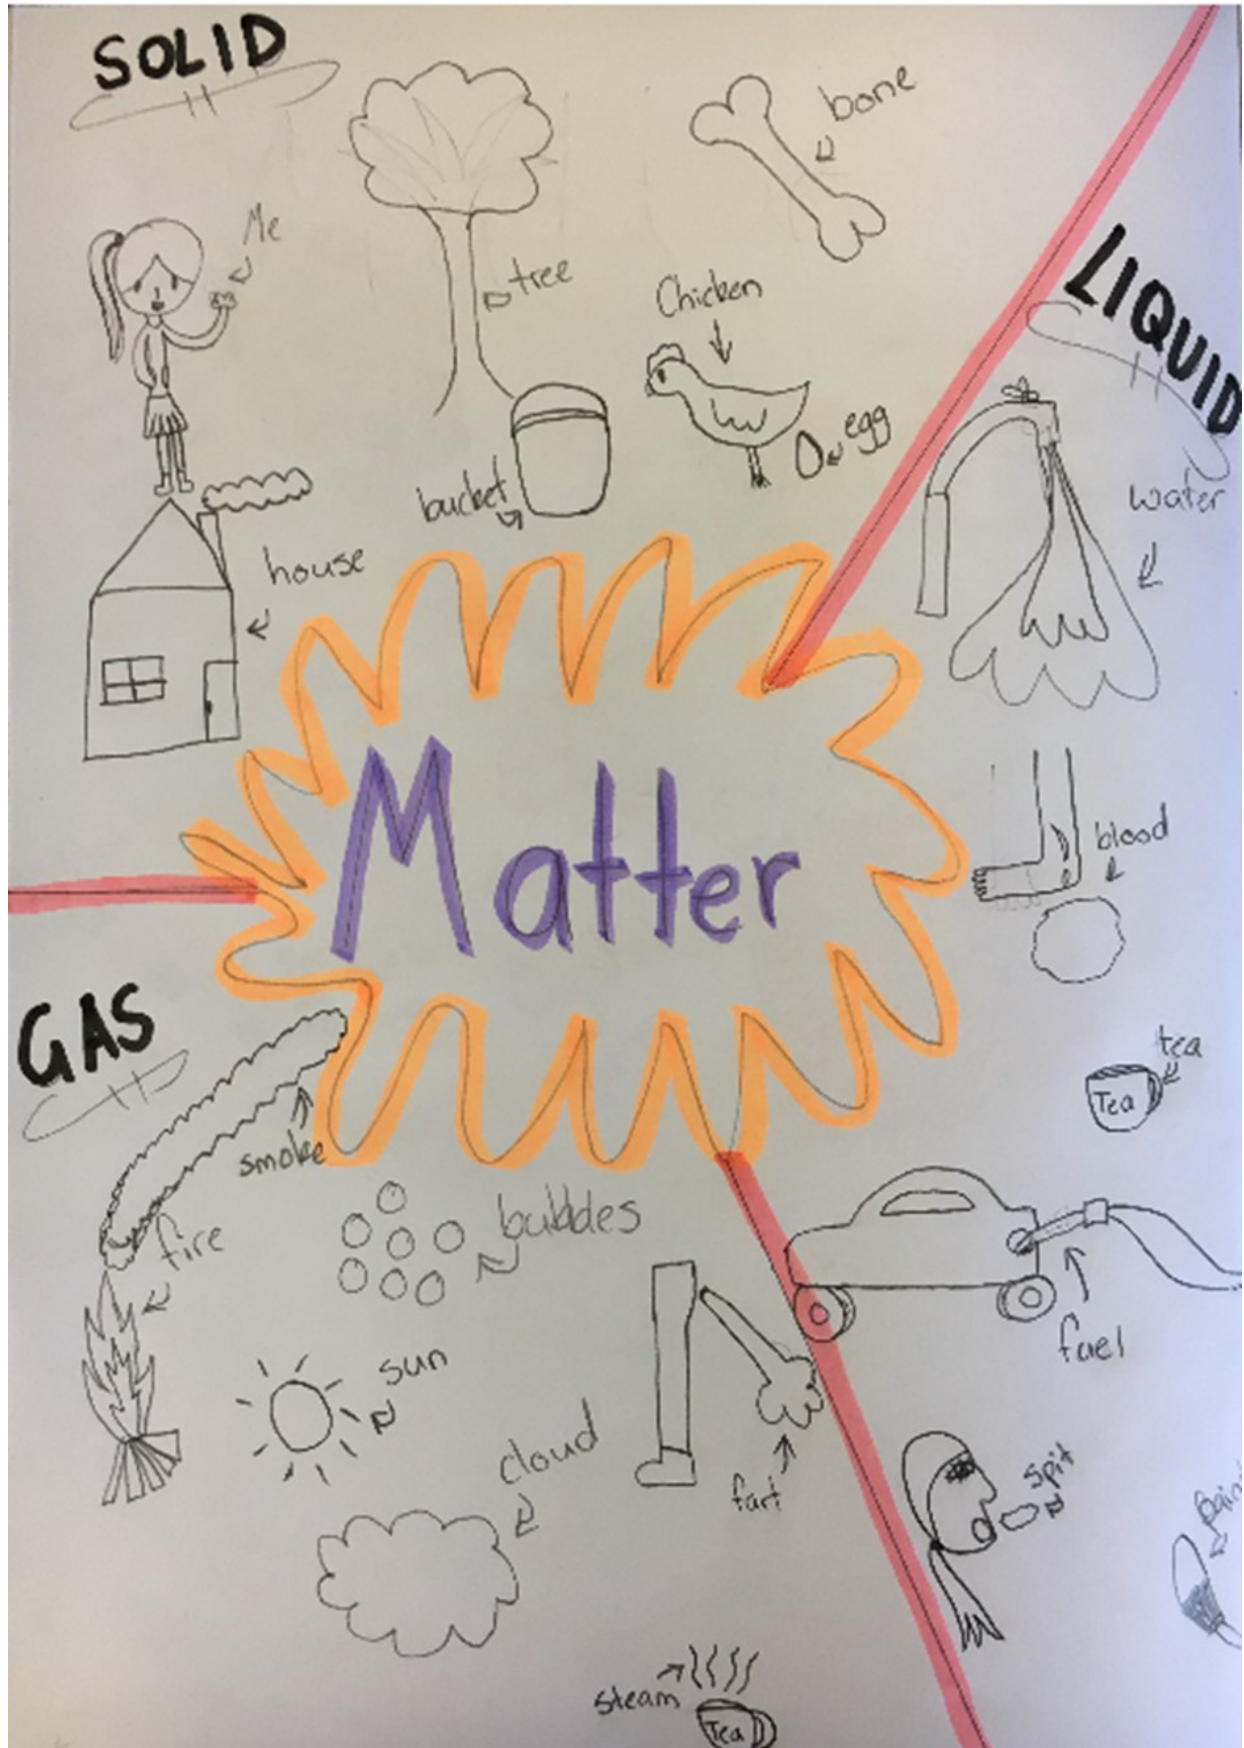 SOLID
bone
Me
tree
Chicken
egg
bucket
house
LIQUID
water
blood
tea
Tea
fuel
spit
Matter
GAS
smoke
fire
bubbles
sun
cloud
fart
steam
Tea